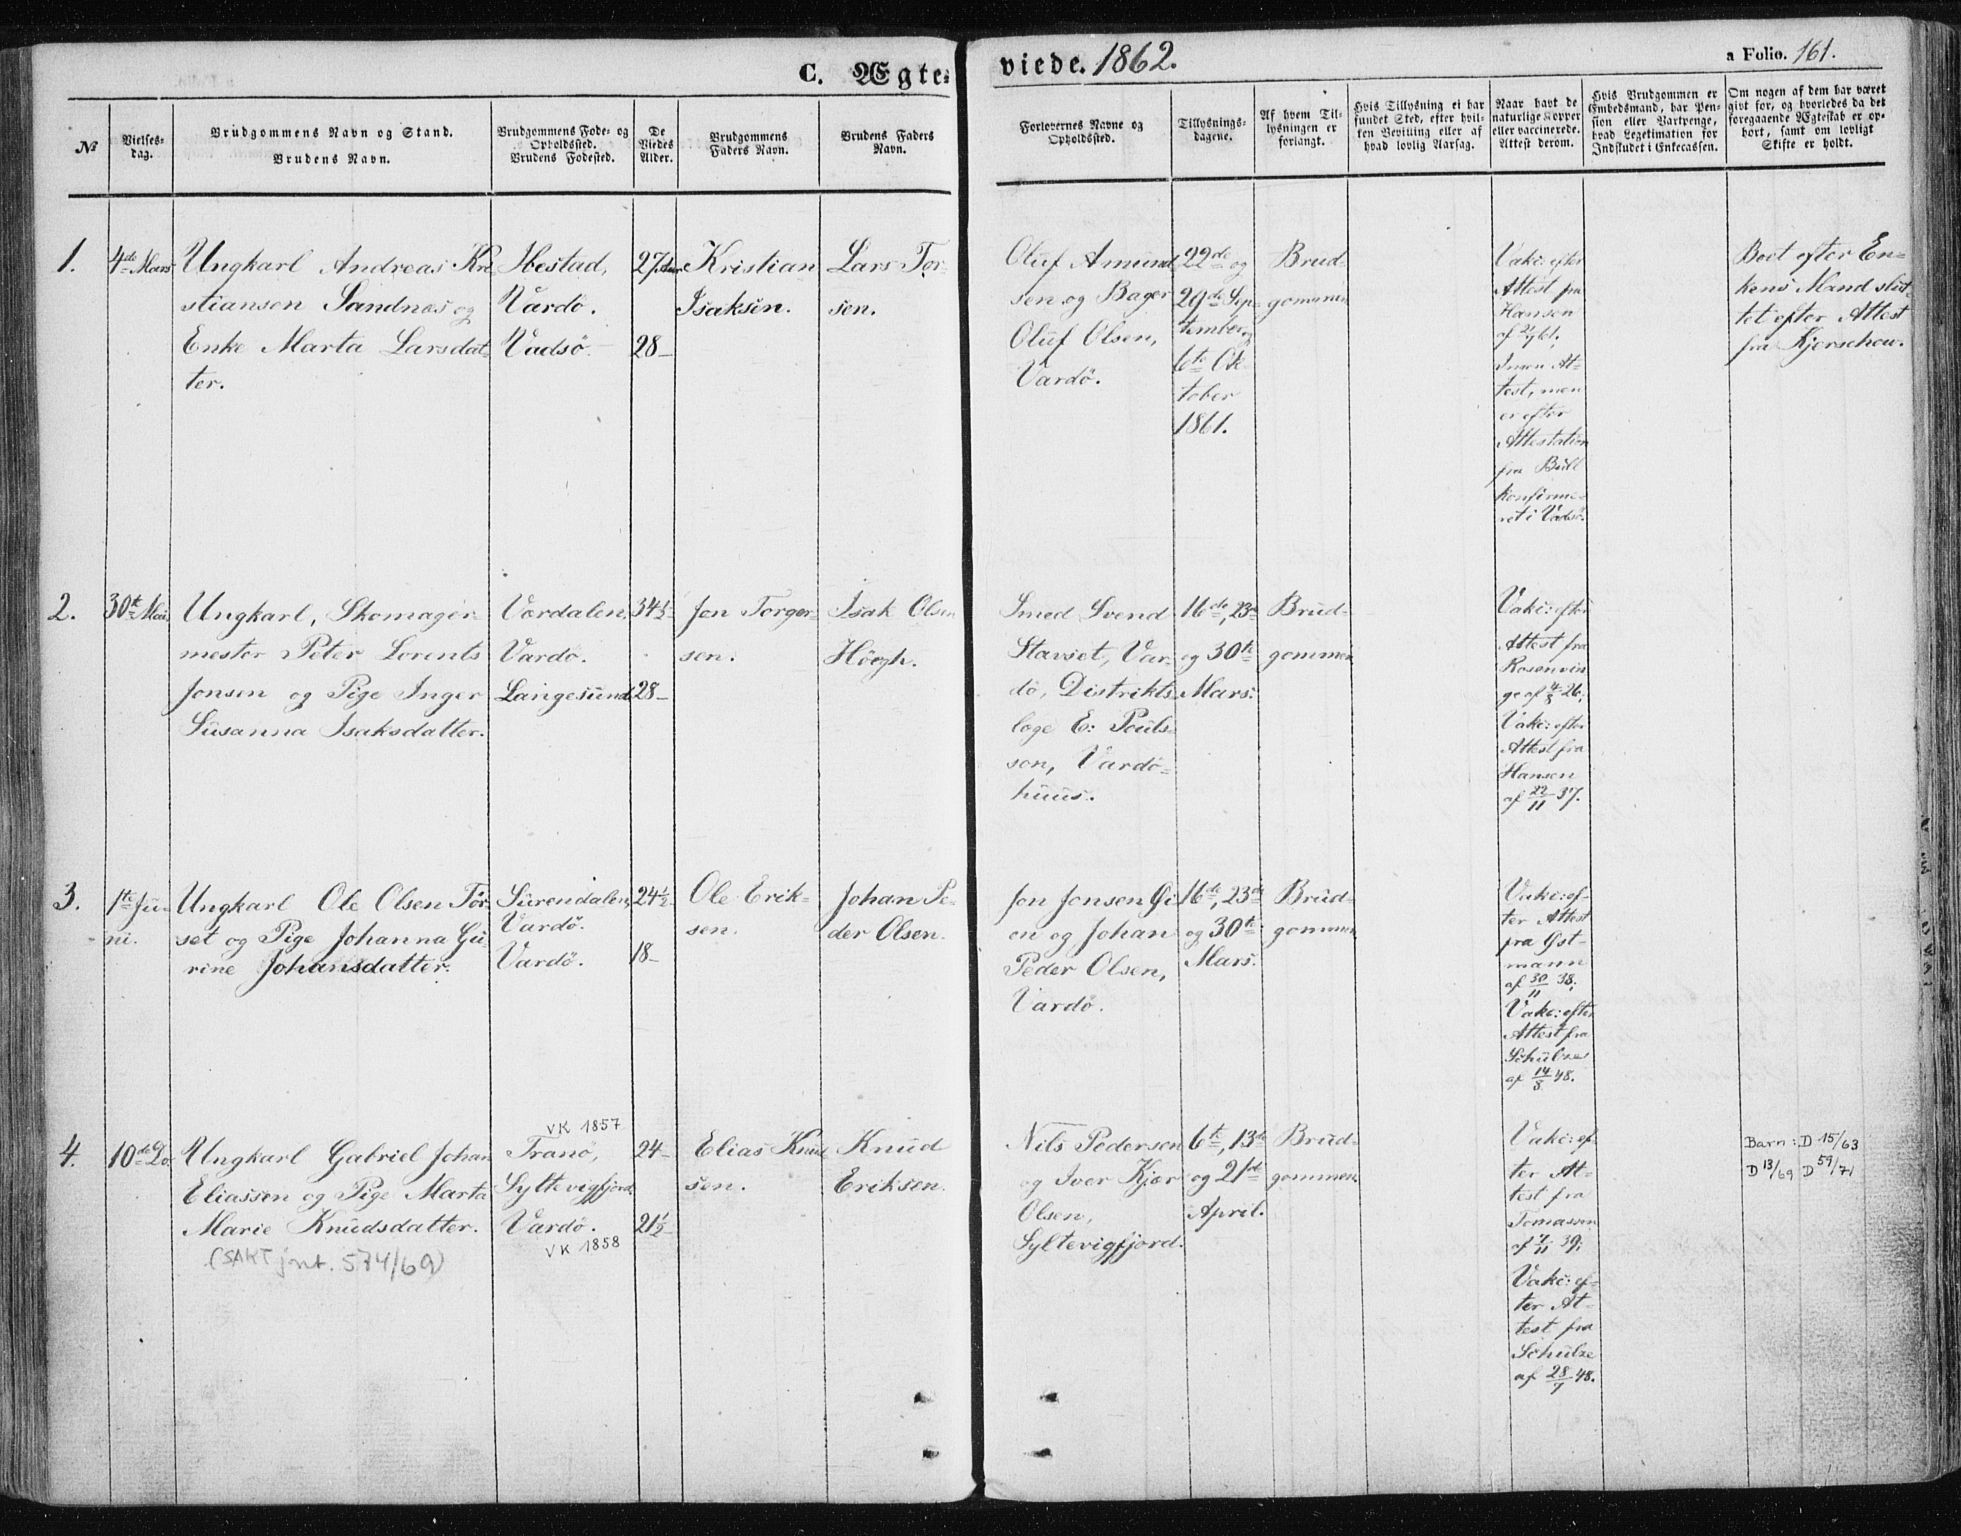 C. Ægte-
viede. 1862.
a Folio. 161.
No
Vielses-
dag.
Brudgommens Navn og Stand.
Brudens Navn.
Brudgommens Føde- og
Opholdssted.
Brudens Fødested.
De
Viedes
Alder.
Brudgommens
Faders Navn.
Brudens Faders
Navn.
Forlovernes Navne og
Opholdssted.
Tillysnings-
dagene.
Af hvem Til-
lysningen er
forlangt.
Hvis Tillysning ei har
fundet Sted, efter hvil-
ken Bevilling eller af
hvad lovlig Aarsag.
Naar havt de
naturlige Kopper
eller vaccinerede.
Attest derom.
Hvis Brudgommen er
Embedsmand, har Pen-
sion eller Vartpenge,
hvad Legetimation for
Indskudet i Enkecassen.
Om nogen af dem har været
givt før, og hvorledes da det
foregaaende Ægteskab er op-
hørt, samt om lovligt
Skifte er holdt.
1.
4de Mars
Ungkarl Andreas Kri
stiansen Sandnæs og
Enke Marta Larsdat
ter.
Ibestad,
Vardö.
Vadsö.
27
28–
Kristian
Isaksen.
Lars Tor-
sen.
Oluf Amund
sen og Bager
Oluf Olsen,
Vardö.
22de og
29de Sep-
tember og
6te Ok
tober
1861.
Brud-
gommen
Vakc: efter
Attest fra
Hansen
af
Ingen At-
test, men
er efter
Attestation
fra Bull
konfirme-
ret i Vadsö.
Boet efter En-
kens Mand skif-
tet efter Attest
fra Kjerschow.
2.
30te Mai
Ungkarl, Skomager-
mester Peter Lorents
Jonsen og Pige Inger
Susanna Isaksdatter.
Værdalen,
Vardö.
Langesund
34½
28–
Jon Torger-
sen.
Isak Olsen
Höegh.
Smed Svend
Stavset, Var-
dö, Distrikts
læge E: Pouls-
son, Vardö-
huus.
16de, 23de
og 30te
Mars.
Brud-
gommen
Vakc: efter
Attest fra
Rosenvin
ge af 4/3 26.
Vakc: efter
Attest fra
Hansen
af 22/11 37.
3.
1ste Ju-
ni.
Ungkarl Ole Olsen Tör-
set og Pige Johanna Gu
rine Johansdatter.
Surendalen,
Vardö.
Vardö.
24½
18–
Ole Erik-
sen.
Johan Pe-
der Olsen.
Jon Jonsen Gi
en og Johan
Peder Olsen,
Vardö.
16de, 23de
og 30te
Mars.
Brud-
gommen
Vakc: ef-
ter Attest
fra Öst-
mann
af 30/11 38.
Vakc: efter
Attest fra
Schulzes
af 14/8 48.
4.
10de Do
Ungkarl Gabriel Johan
Eliassen og Pige Marta
Marie Knudsdatter.
(SAKT jnt. 574/69)
VK 1857
Tranö,
Syltevigfjord
Vardö.
VK 1858
24–
21½
Elias Knud
sen.
Knud
Eriksen.
Nils Pedersen
og Iver Kjær
Olsen,
Syltevigfjord.
6te, 13de
og 21de
April.
Brud-
gommen.
Vakc: ef-
ter At-
test fra
Tomassen
af 7/11 39.
Vakc: ef-
ter At-
test fra
Schulze
af 28/7 48.
Barn: D 15/63
D 13/69 D 59/71